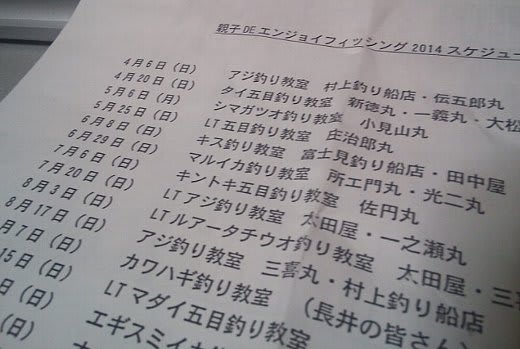 親子DEエンジョイフィッシング2014スケジュー
4月6日(日) アジ釣り教室 村上釣り船店・伝五郎丸
4月20日(日) タイ五目釣り教室 新徳丸・一義丸・大松
5月6日(月) シマガツオ釣り教室 小見山丸
5月25日(日) LT五目釣り教室 庄治郎丸
6月8日(日) キス釣り教室 富士見釣り船店・田中屋
6月29日(日) マルイカ釣り教室 所エ門丸・光二丸
7月6日(日) キントキ五目釣り教室 佐円丸
7月20日(日) LTアジ釣り教室 太田屋・一之瀬丸
8月3日(日) LTルアータチウオ釣り教室 太田屋・三
8月17日(日) アジ釣り教室 三喜丸・村上釣り船店
月7日(日) カワハギ釣り教室 (長井の皆さん)
15日(日) LTマダイ五目釣り教室
(日) エギスミイカ
(日)